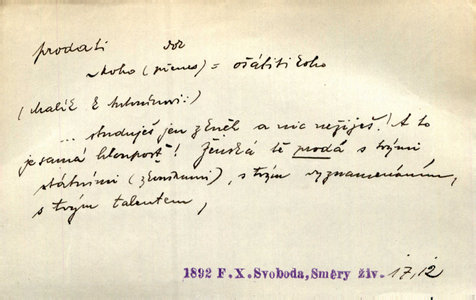 prodati dok
~ koho (přenes) = ošáliti koho
(Malík k Antonínovi:)
... studuješ jen zeněl a nic nežiješ! A to
je samá hloupost! Ženská tě prodá s tvými
státními (zkouškami), s tvým vyznamenáním,
s tvým talentem,
1892 F.X.Svoboda, Směry živ. 17, 12